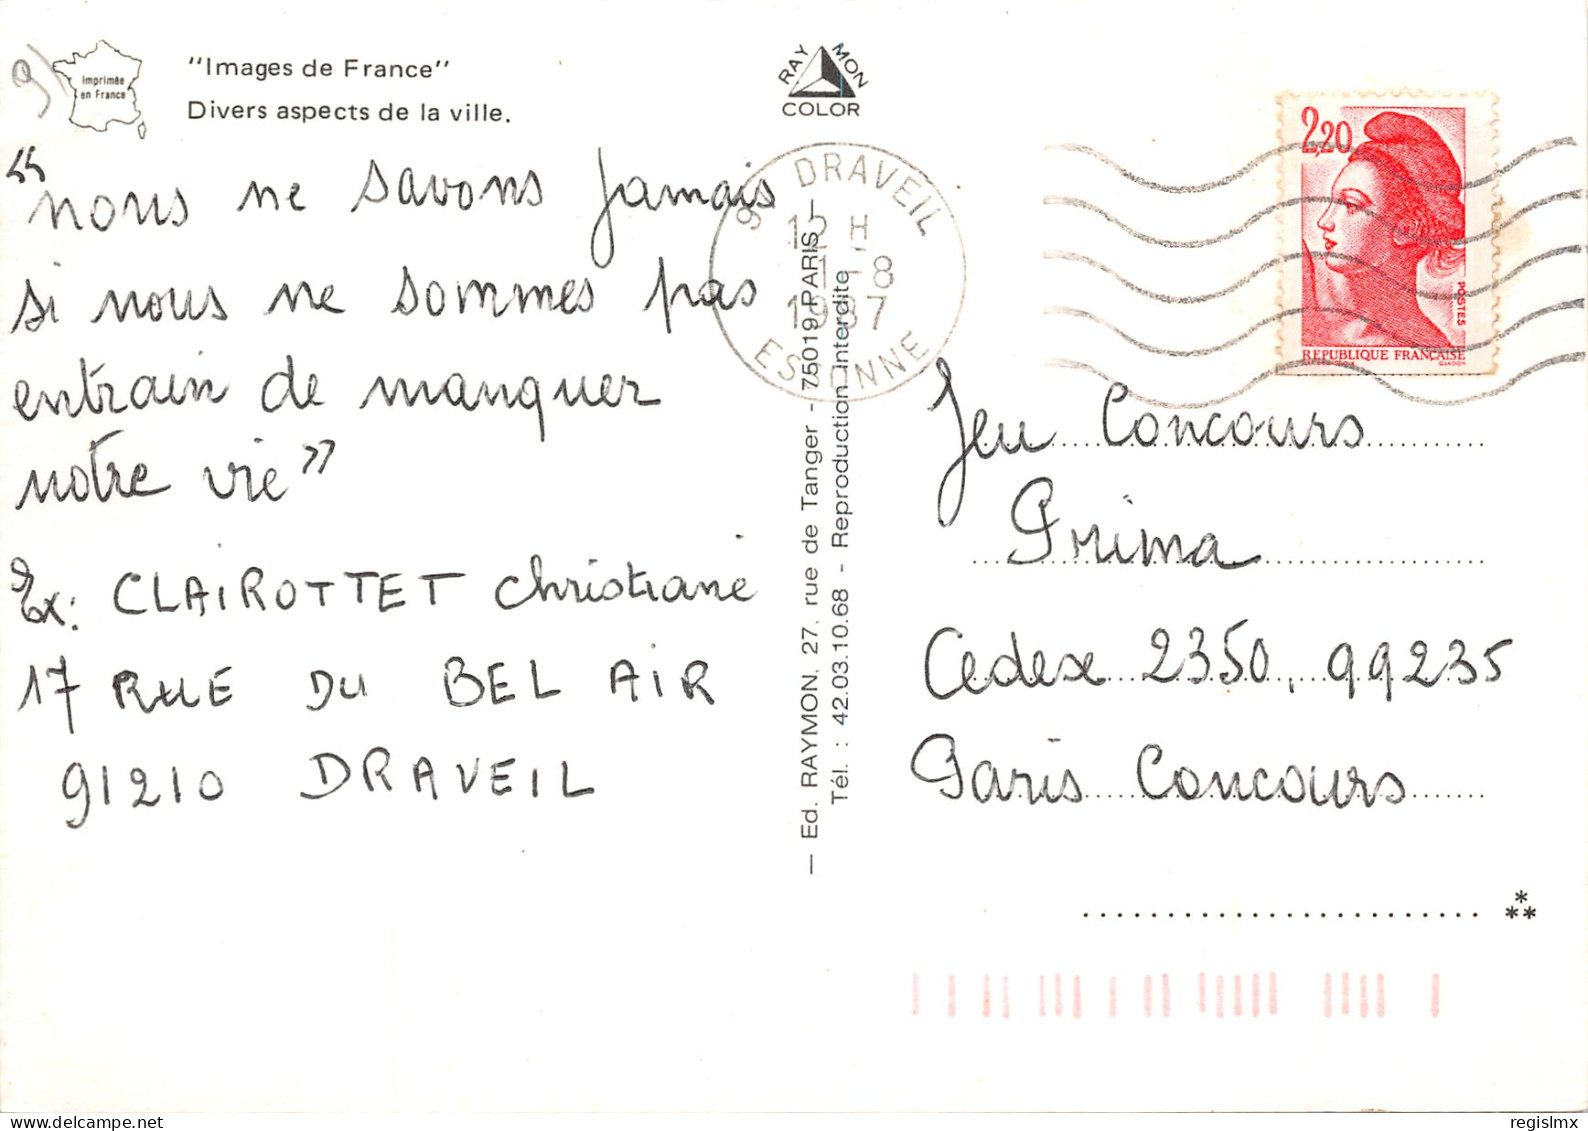 Imprimée
en France
"Images de France"
Divers aspects de la ville.
RAYMON
COLOR
"nous ne savons jamais
si nous ne sommes pas
entrain de manquer
notre vie"
Ex: CLAIROTTET Christiane
17 RUE DU BEL AIR
91210 DRAVEIL
— Ed. RAYMON, 27, rue de Tanger - 75019 PARIS —
Tél. : 42.03.10.68 - Reproduction interdite
DRAVEIL
15 H
1-8
1987
ESSONNE
2,20
POSTES
REPUBLIQUE FRANÇAISE
GANDON
Jeu Concours
Prima
Cedex 2350, 99235
Paris Concours
***
regislmx